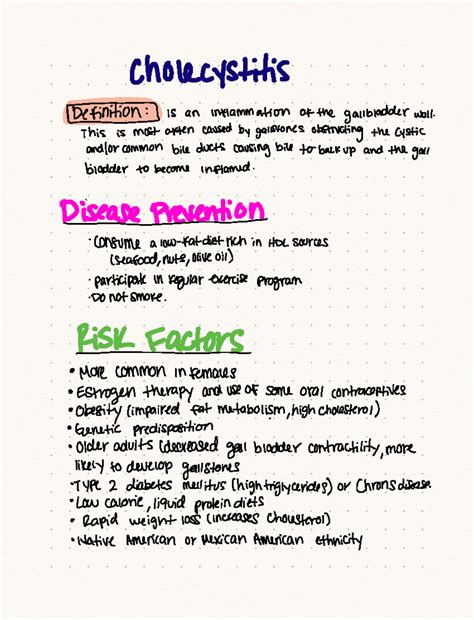 Cholecystitis
Definition: is an inflammation of the gallbladder wall.
This is most often caused by gallstones obstructing the cystic
and/or common bile ducts causing bile to back up and the gall
bladder to become inflamed.
Disease Prevention
· Consume a low-fat-diet rich in HDL sources
(seafood, nuts, olive oil)
· participate in regular exercise program
· Do not smoke.
Risk Factors
• More common in females
• Estrogen therapy and use of some oral contraceptives
• Obesity (impaired fat metabolism, high cholesterol)
• Genetic predisposition
• Older adults (decreased gall bladder contractility, more
likely to develop gallstones
• TYPE 2 diabetes mellitus (high triglycerides) or Chrons disease
• Low calorie, liquid protein diets
• Rapid weight loss (increases Cholesterol)
• Native American or Mexican American ethnicity